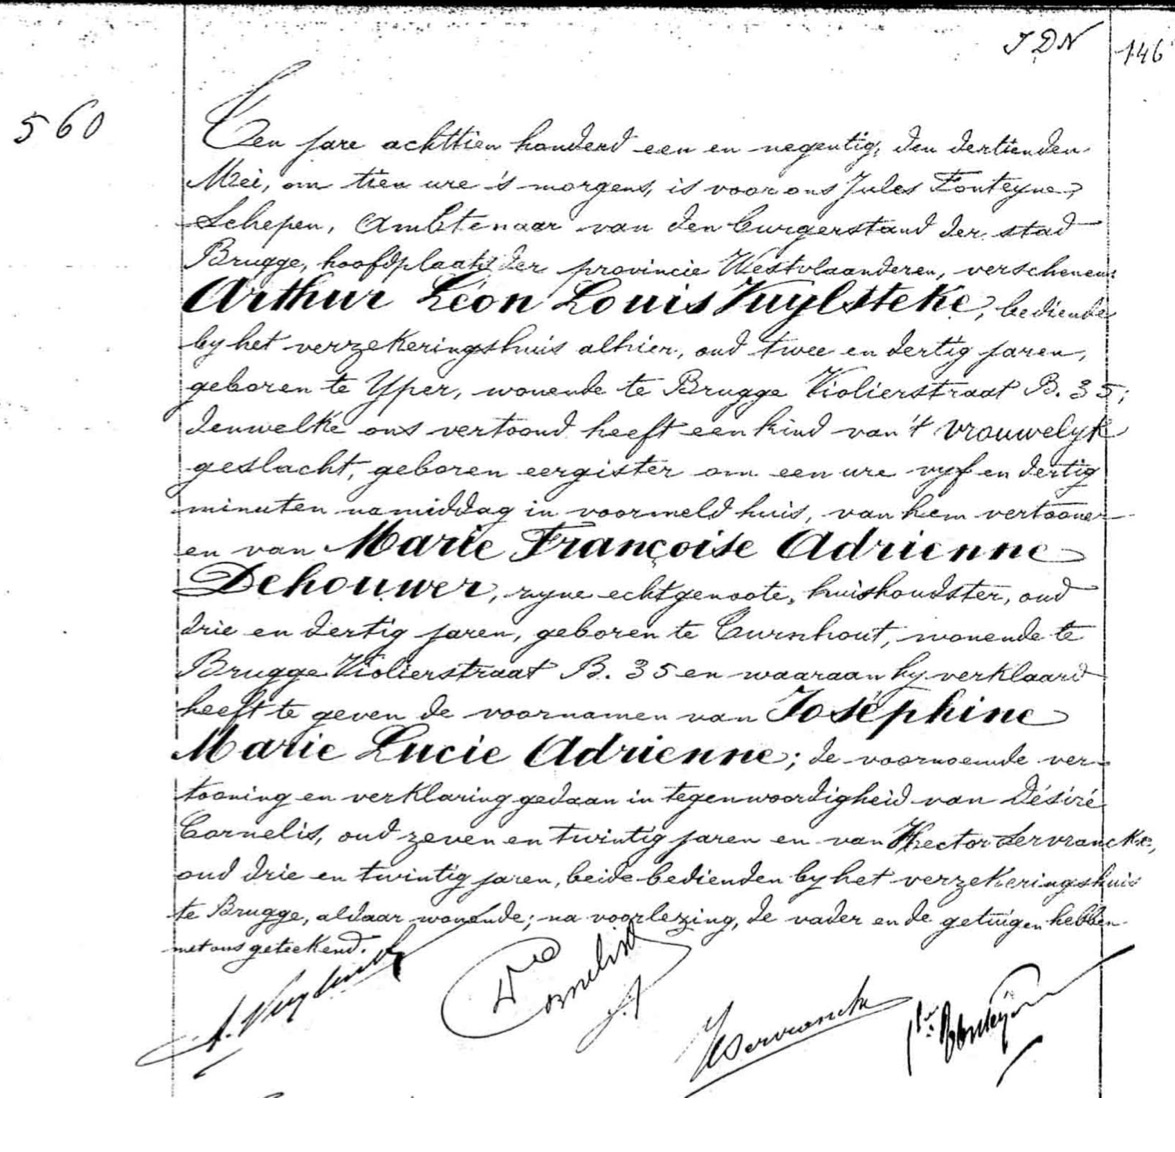 JDN 146
560
Ten jare achttien honderd een en negentig, den dertienden
Mei, om tien ure 's morgens, is voor ons Jules Fonteyne,
Schepen, Ambtenaar van den burgerstand der stad
Brugge, hoofdplaats der provincie Westvlaanderen, verschenen:
Arthur Léon Louis Vuylsteke, bediende
by het verzekeringshuis alhier, oud twee en dertig jaren,
geboren te Yper, wonende te Brugge Violierstraat B. 35;
denwelke ons vertoond heeft een kind van 't vrouwelyk
geslacht, geboren eergister om een ure vyf en dertig
minuten namiddag in voormeld huis, van hem vertooner
en van Marie Françoise Adrienne
Dehouwer, zyne echtgenoote, huishoudster, oud
drie en dertig jaren, geboren te Turnhout, wonende te
Brugge Violierstraat B. 35 en waaraan hy verklaard
heeft te geven de voornamen van Joséphine
Marie Lucie Adrienne; de voornoemde ver-
tooning en verklaring gedaan in tegenwoordigheid van Désiré
Cornelis, oud zeven en twintig jaren en van Hector Servranckx,
oud drie en twintig jaren, beide bedienden by het verzekeringshuis
te Brugge, aldaar wonende; na voorlezing, de vader en de getuigen hebben
met ons geteekend.
A. Vuylsteke Dré Cornelis
HServranckx Jles Fonteyne